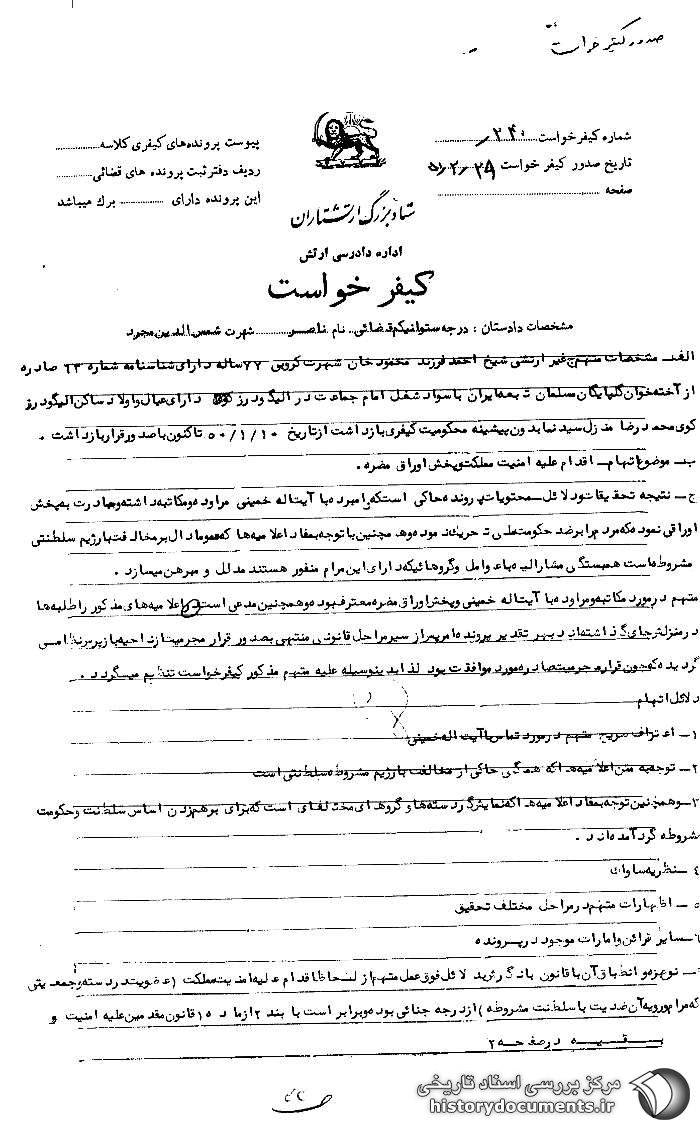 صدور کیفر خواست
شماره کیفر خواست ۲۴۰/
تاریخ صدور کیفر خواست ۵۱/۲/۲۹
صفحه
پیوست پرونده های کیفری کلاسه
ردیف دفتر ثبت پرونده های قضائی
این پرونده دارای برگ میباشد
ستاد بزرگ ارتشتاران
اداره دادرسی ارتش
کیفر خواست
مشخصات دادستان : درجه ستوانیکم قضائی نام ناصر شهرت شمس الدین مجرد
الف- مشخصات متهم غیر ارتشی شیخ احمد فرزند محمود خان شهرت کروبی ۷۷ ساله دارای شناسنامه شماره ۶۳ صادره
از آخته خوان گلپایگان مسلمان تبعه ایران باسواد شغل امام جماعت در الیگودرز دارای عیال و اولاد ساکن الیگودرز
کوی محمد رضا منزل سید نما بدون پیشینه محکومیت کیفری بازداشت از تاریخ ۵۰/۱/۱۰ تاکنون باصدور قرار بازداشت .
ب- موضوع اتهام- اقدام علیه امنیت مملکت و پخش اوراق مضره .
ج- نتیجه تحقیقات و دلائل- محتویات پرونده حاکی است که نامبرده با آیت اله خمینی مراوده و مکاتبه داشته و مبادرت به پخش
اوراقی نموده که مردم را بر ضد حکومت ملی تحریک نموده و همچنین با توجه بمفاد اعلامیه ها که عموما دال بر مخالفت با رژیم سلطنتی
مشروطه است همبستگی مشارالیه با عوامل و گروهائیکه دارای این مرام منفور هستند مدلل و مبرهن میسازد .
متهم در مورد مکاتبه و مراوده با آیت اله خمینی و پخش اوراق مضره معترف بوده و همچنین مدعی است اعلامیه های مذکور را طلبه ها
در منزلش جای گذاشته اند در هر تقدیر پرونده امر پس از سیر مراحل قانونی منتهی بصدور قرار مجرمیت از ناحیه بازپرس نظامی
گردیده که چون قرار مجرمیت صادره مورد موافقت بود لذا بدینوسیله علیه متهم مذکور کیفر خواست تنظیم میگردد .
دلائل اتهام
۱- اعتراف صریح متهم در مورد تماس با آیت اله خمینی
۲- توجه به متن اعلامیه ها که همگی حاکی از مخالفت با رژیم مشروطه سلطنتی است
۳- و همچنین توجه بمفاد اعلامیه ها که نمایشگر دسته ها و گروهای مختلفای است که برای برهم زدن اساس سلطنت و حکومت
مشروطه گرد آمده اند .
۴- نظریه ساواک
۵- اظهارات متهم در مراحل مختلف تحقیق
۶- سایر قرائن و امارات موجود در پرونده
نوع بزه و انطباق آن با قانون با نگرش بدلائل فوق عمل متهم از لحاظ اقدام علیه امنیت مملکت (عضویت در دسته و جمعیتی
که مرام و رویه آن ضدیت با سلطنت مشروطه) از درجه جنائی بوده و برابر است با بند ۲ از ماده ۱ قانون مقدمین علیه امنیت و
بقیه در صفحه ۲
مرکز بررسی اسناد تاریخی
historydocuments.ir